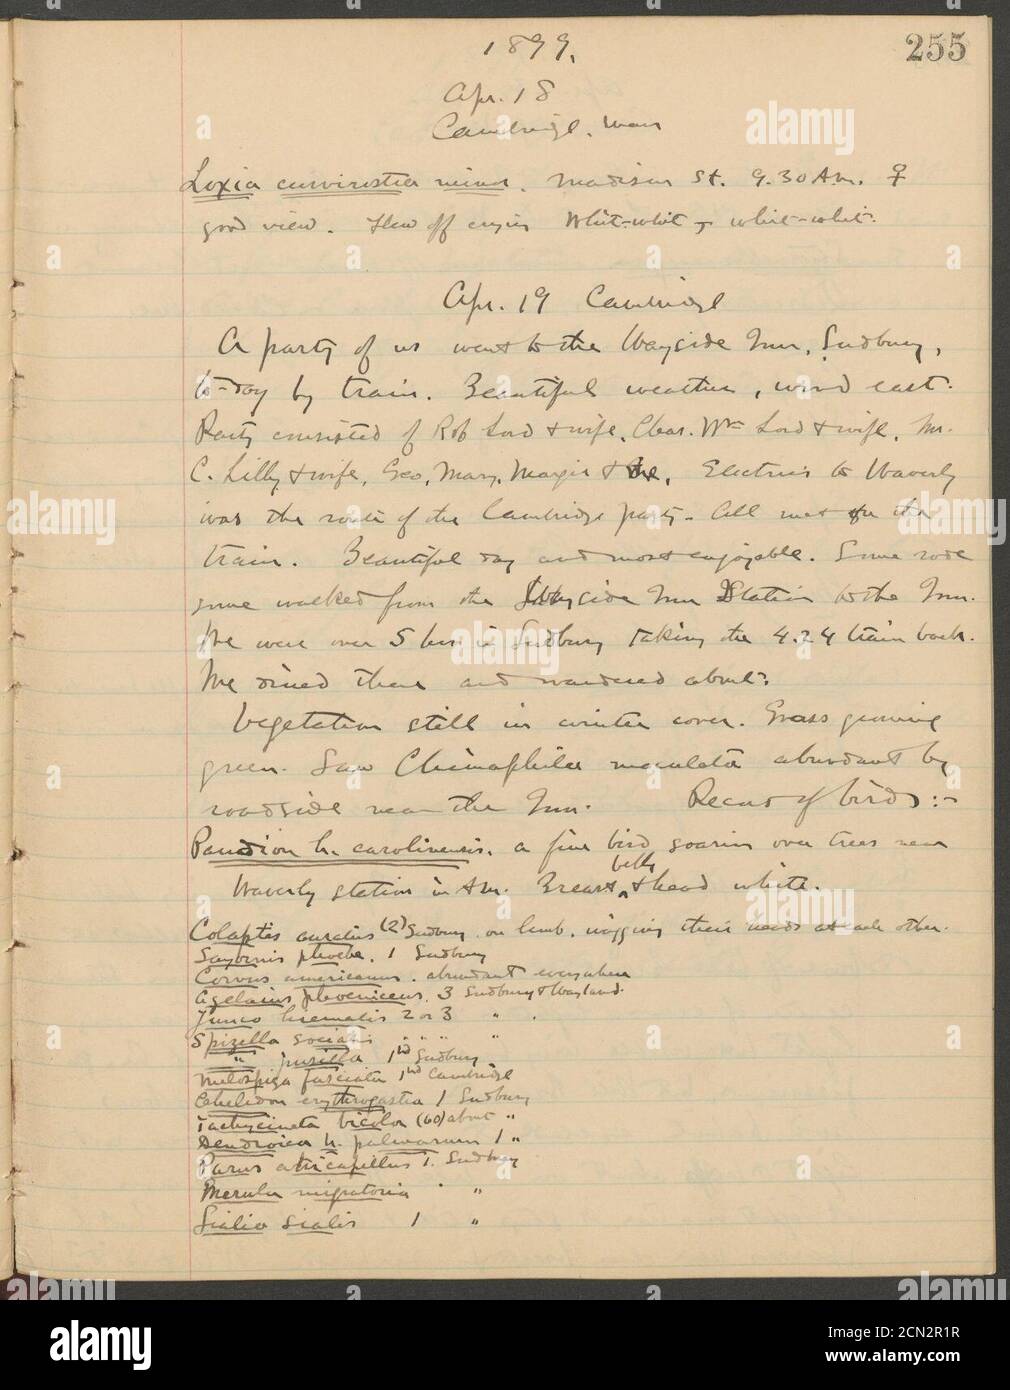 255
1899.
Apr. 18
Cambridge, Mass
Loxia curvirostra minor. Madison St. 9.30 A.M. ♀
good view. Flew off crying Whit-whit, whit-whit.
Apr. 19 Cambridge
A party of us went to the Wayside Inn, Sudbury,
to-day by train. Beautiful weather, wind east.
Party consisted of Rob Lord & wife, Chas. Wm Lord & wife, Mr.
C. Lilly & wife, Geo, Mary, Margie & me. Electrics to Waverly
was the route of the Cambridge party. All met on the
train. Beautiful day and most enjoyable. Some rode
some walked from the Wayside Inn Station to the Inn.
We were over 5 hrs. in Sudbury taking the 4.24 train back.
We dined there and wandered about.
Vegetation still in winter cover. Grass growing
green. Saw Chimaphila maculata abundant by
roadside near the Inn. Record of birds:-
Pandion h. carolinensis. a fine bird soaring over trees near
Waverly station in A.M. Breast belly & head white.
Colaptes auratus (2) Sudbury on limb, wigging their heads at each other.
Sayornis phoebe. 1 Sudbury
Corvus americanus. abundant everywhere
Agelaius phoeniceus. 3 Sudbury & Wayland.
Junco hiemalis 2 or 3 "
Spizella socialis " " " "
" pusilla 1 hd Sudbury
Melospiza fasciata 1 hd Cambridge
Chelidon erythrogastra 1 Sudbury
Tachycineta bicolor (60) about "
Dendroica h. palmarum 1 "
Parus atricapillus 1. Sudbury
Merula migratoria "
Sialia sialis 1 "
alamy
Image ID: 2CN2R1R
www.alamy.com